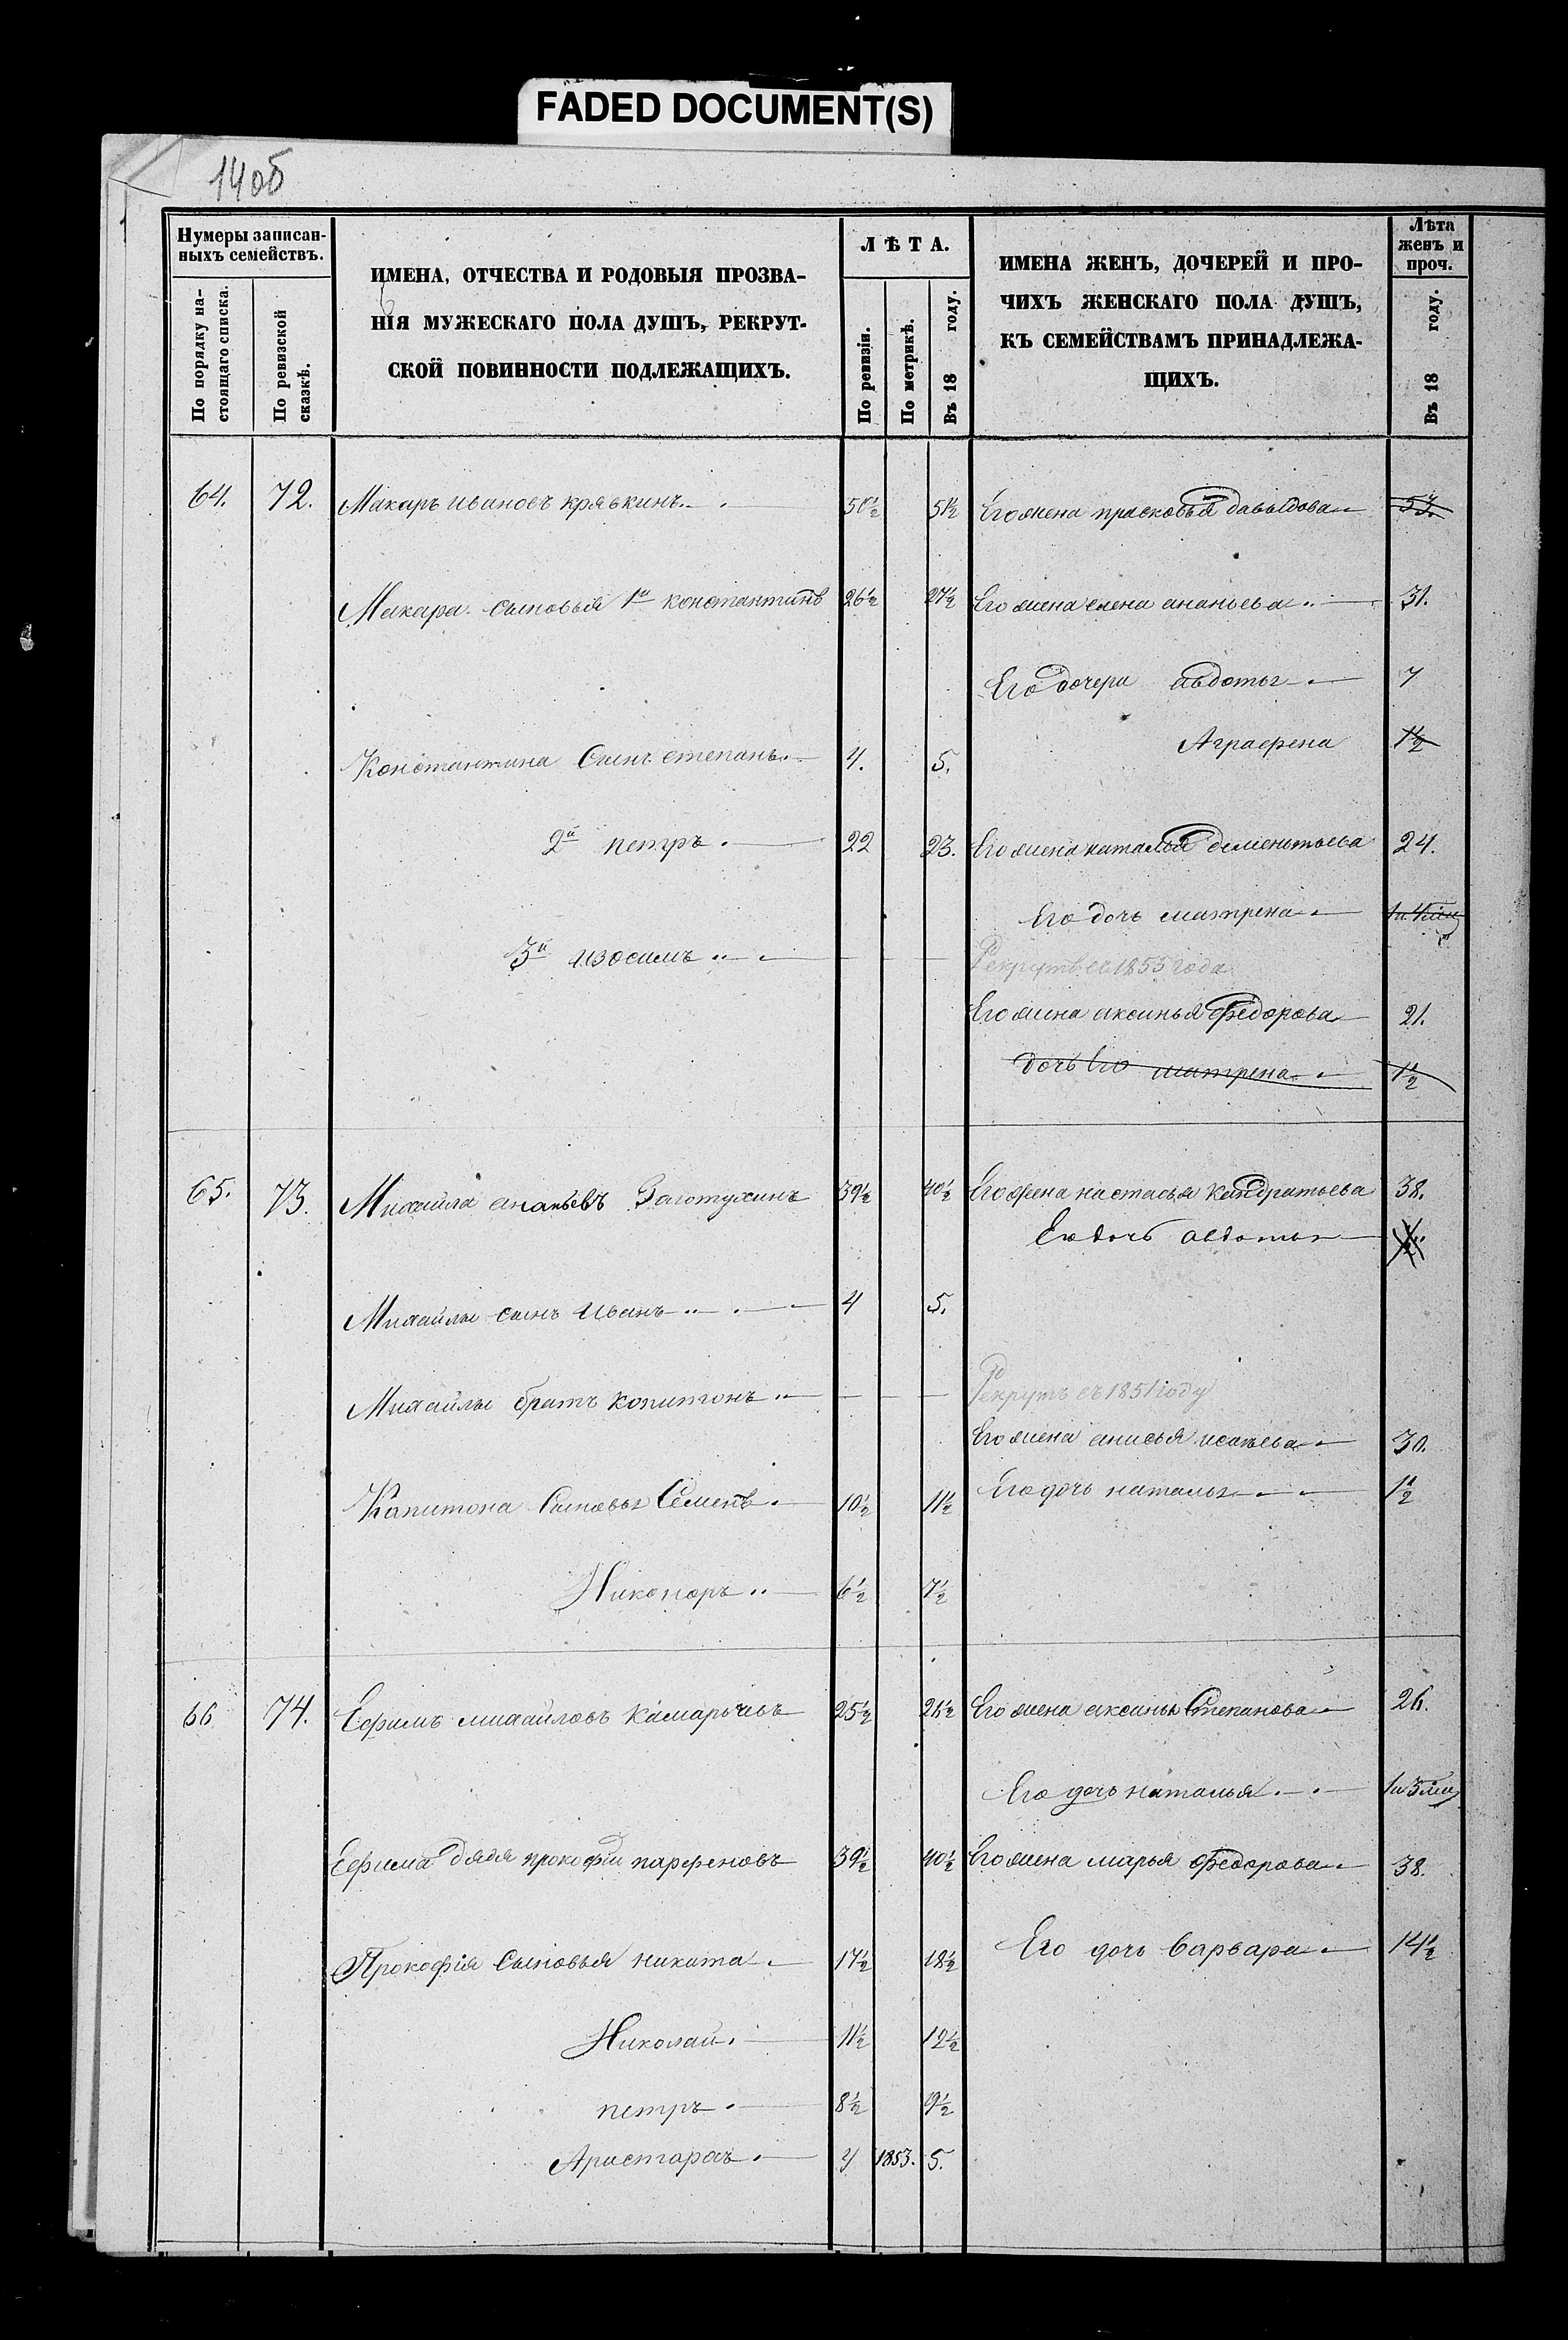 FADED DOCUMENT(S)
14 об
Нумеры записан-
ныхъ семействъ.
По порядку на-
стоящаго списка.
По ревизской
сказкѣ.
ИМЕНА, ОТЧЕСТВА И РОДОВЫЯ ПРОЗВА-
НІЯ МУЖЕСКАГО ПОЛА ДУШЪ, РЕКРУТ-
СКОЙ ПОВИННОСТИ ПОДЛЕЖАЩИХЪ.
ЛѢТА.
По ревизіи.
По метрикѣ.
Въ 18 году.
ИМЕНА ЖЕНЪ, ДОЧЕРЕЙ И ПРО-
ЧИХЪ ЖЕНСКАГО ПОЛА ДУШЪ,
КЪ СЕМЕЙСТВАМЪ ПРИНАДЛЕЖА-
ЩИХЪ.
Лѣта
женъ и
проч.
Въ 18 году.
64. 72. Макаръ ивановъ крявкинъ 50½ 51½ Его жена прасковья давыдова 53.
Макара сыновья 1й константинъ 26½ 27½ Его жена елена ананьева 31.
Его дочери авдотья 7
Аграфена 1½
Константина Сынъ степанъ 4. 5.
2й петръ 22 23. Его жена наталья дементьева 24.
Его дочь матрена
3й изосимъ
Рекрутъ съ 1855 года
Его жена аксинья федорова 21.
дочь Его матрена 1½
65. 73. Михайла ананьевъ 39½ 40½ Его жена настасья кандратьева 38.
Его дочь авдотья
Михайлы сынъ иванъ 4 5.
Михайлы братъ копитонъ Рекрутъ съ 1851 году
Его жена анисья исаева 30.
Капитона Сыновья Семенъ 10½ 11½ Его дочь наталья 1½
Никоноръ 6½ 7½
66 74. Ефимъ михайловъ 25½ 26½ Его жена аксинья Степанова 26.
Его дочь наталья
Ефима дядя прокофій парфеновъ 39½ 40½ Его жена марья федорова 38.
Прокофія Сыновья никита 17½ 18½ Его дочь варвара 14½
Николай 11½ 12½
петръ 8½ 9½
Аристархъ 4 1853. 5.